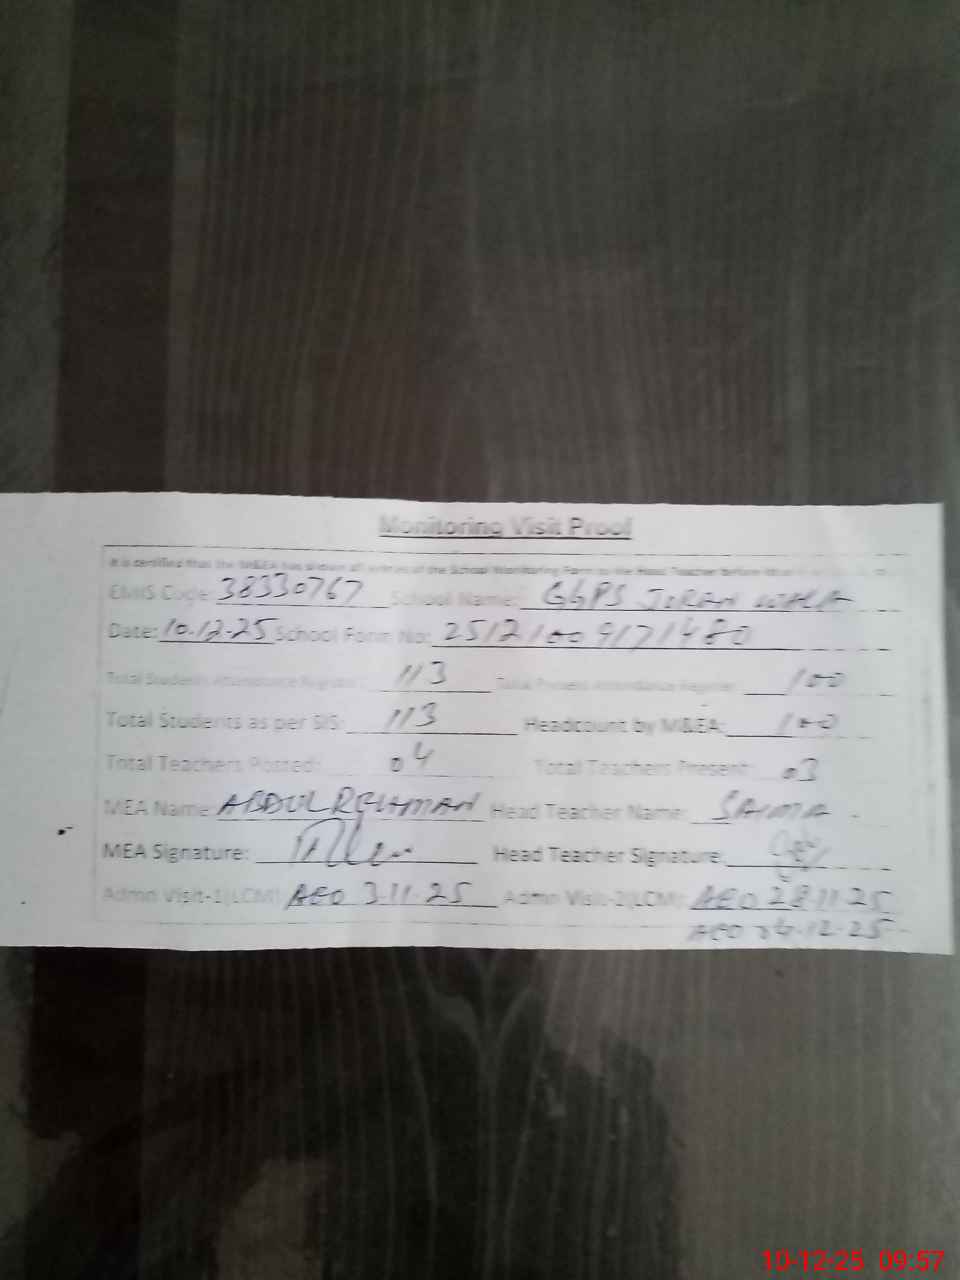 Monitoring Visit Proof
It is certified that the M&EA has shown all entries of the School Monitoring Form to the Head Teacher before
EMIS Code: 38330767 School Name: GGPS JORAN WALA
Date: 10.12.25 School Form No: 25121009171480
Total Students Attendance Register: 113 Total Present Attendance Register: 100
Total Students as per SIS: 113 Headcount by M&EA: 100
Total Teachers Posted: 04 Total Teachers Present: 03
MEA Name: ABDUL REHMAN Head Teacher Name: SAIMA
MEA Signature: Head Teacher Signature:
Admn Visit-1(LCM): AEO 3.11.25 Admn Visit-2(LCM): AEO 28.11.25
AEO 04.12.25
10-12-25 09:57